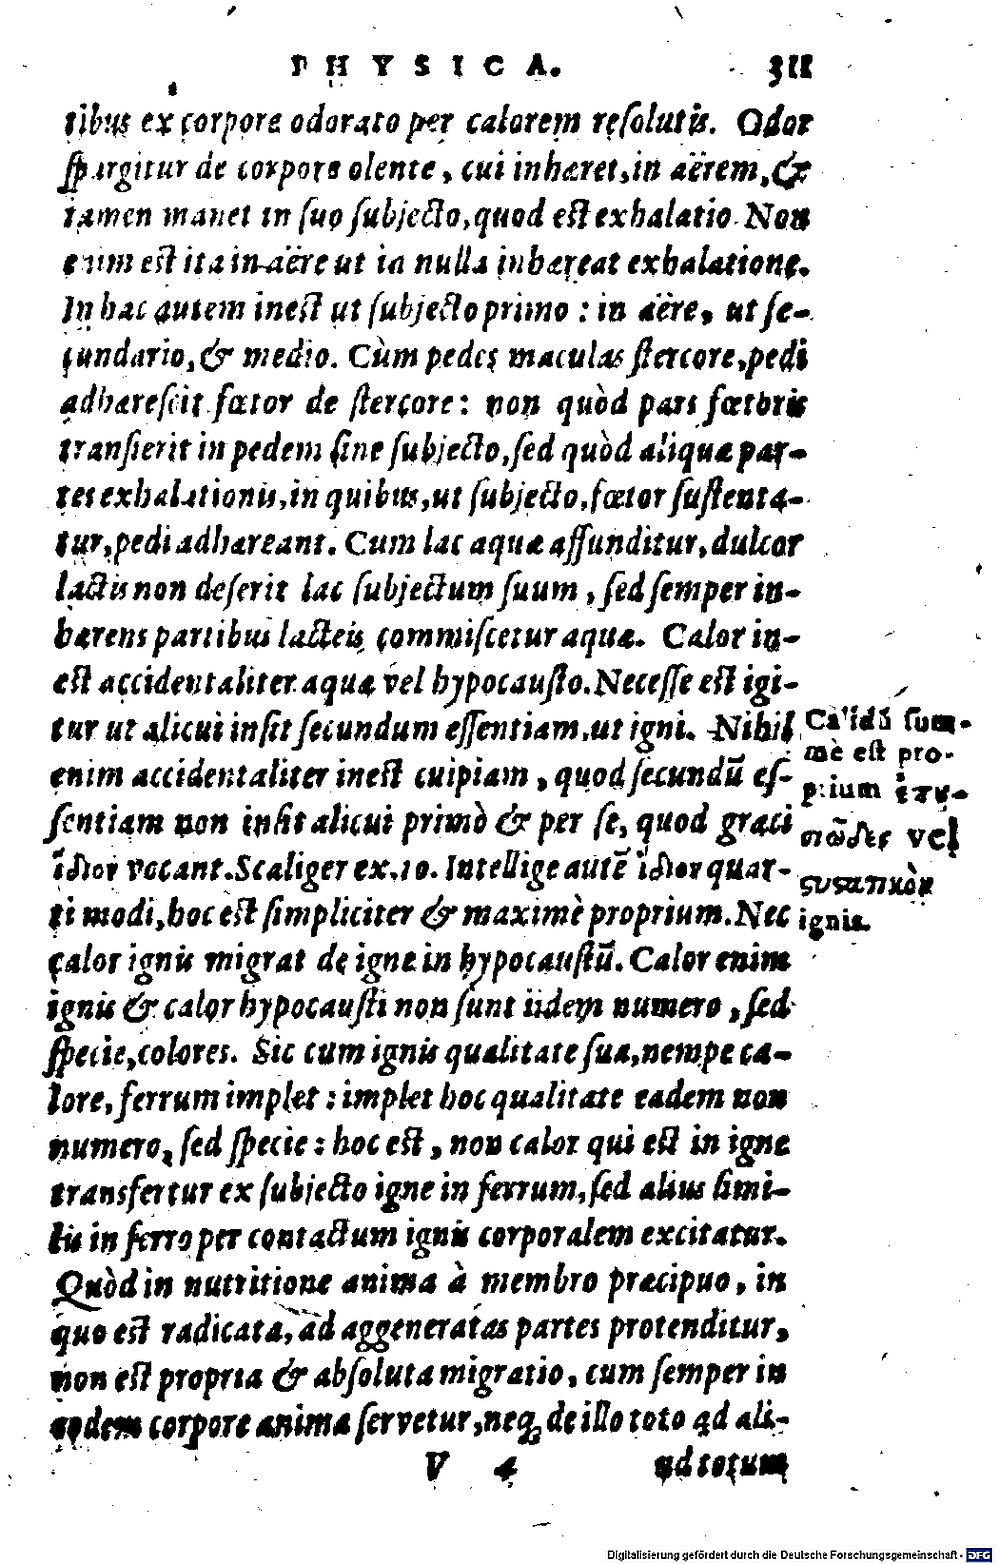 PHYSICA. 311
tibus ex corpore odorato per calorem resolutis. Odor
spargitur de corpore olente, cui inhæret, in aërem, &
tamen manet in suo subjecto, quod est exhalatio. Non
enim est ita in aëre ut in nulla inhæreat exhalatione.
In hac autem inest ut subjecto primo: in aëre, ut se-
cundario, & medio. Cùm pedes maculas stercore, pedi
adhærescit fœtor de stercore: non quòd pars fœtoris
transierit in pedem sine subjecto, sed quòd aliquæ par-
tes exhalationis, in quibus, ut subjecto, fœtor sustenta-
tur, pedi adhæreant. Cum lac aquæ affunditur, dulcor
lactis non deserit lac subjectum suum, sed semper in-
hærens partibus lacteis commiscetur aquæ. Calor in-
est accidentaliter aquæ vel hypocausto. Necesse est igi-
tur ut alicui insit secundum essentiam, ut igni. Nihil
enim accidentaliter inest cuipiam, quod secundũ es-
sentiam non insit alicui primò & per se, quod græci
ἴδιον vocant. Scaliger ex. 10. Intellige autẽ ἴδιον quar-
ti modi, hoc est simpliciter & maximè proprium. Nec
calor ignis migrat de igne in hypocaustũ. Calor enim
ignis & calor hypocausti non sunt iidem numero, sed
specie, colores. Sic cum ignis qualitate sua, nempe ca-
lore, ferrum implet: implet hoc qualitate eadem non
numero, sed specie: hoc est, non calor qui est in igne
transfertur ex subjecto igne in ferrum, sed alius simi-
lis in ferro per contactum ignis corporalem excitatur.
Quòd in nutritione anima à membro præcipuo, in
quo est radicata, ad aggeneratas partes protenditur,
non est propria & absoluta migratio, cum semper in
eodem corpore anima servetur, neq; de illo toto ad ali-
V 4 ud totum
Calidũ sum-
mè est pro-
prium
vel
ignis.
Digitalisierung gefördert durch die Deutsche Forschungsgemeinschaft - DFG